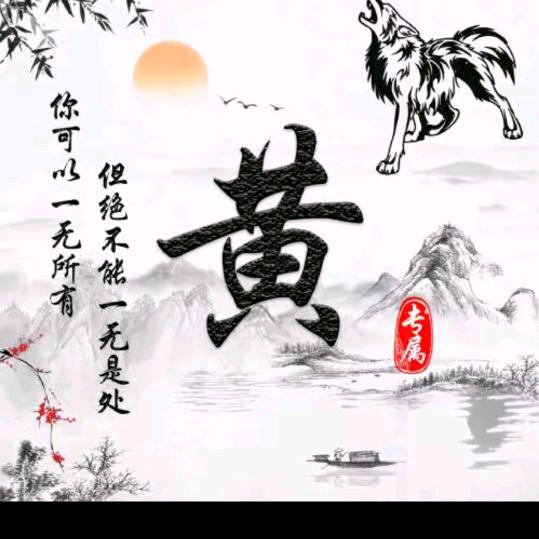 你可以一无所有
但绝不能一无是处
黄
专属